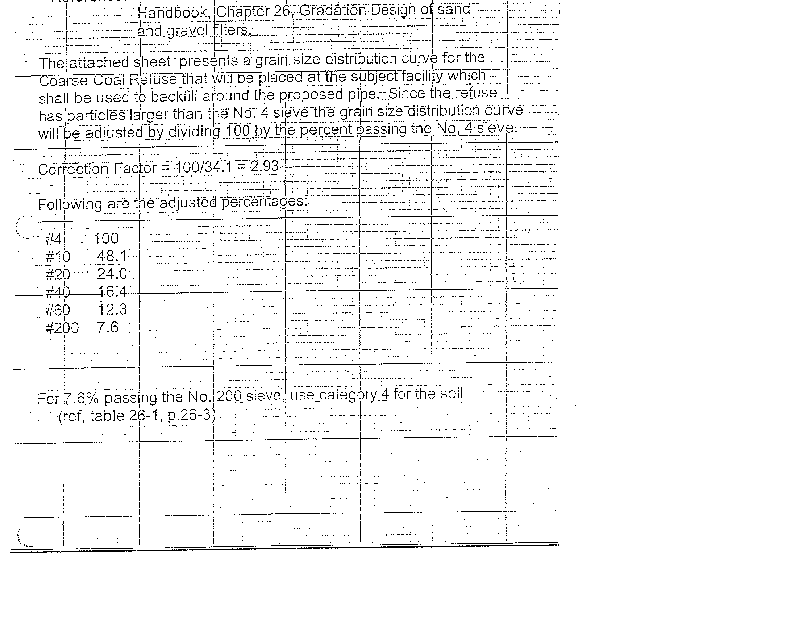 Handbook, Chapter 26, Gradation Design of sand
and gravel filters.
The attached sheet presents a grain size distribution curve for the
Coarse Coal Refuse that will be placed at the subject facility which
shall be used to backfill around the proposed pipe. Since the refuse
has particles larger than the No. 4 sieve the grain size distribution curve
will be adjusted by dividing 100 by the percent passing the No. 4 sieve.
Correction Factor = 100/34.1 = 2.93
Following are the adjusted percentages:
#4 100
#10 48.1
#20 24.0
#40 16.4
#60 12.3
#200 7.6
For 7.6% passing the No. 200 sieve, use category 4 for the soil
(ref, table 26-1, p.26-3)